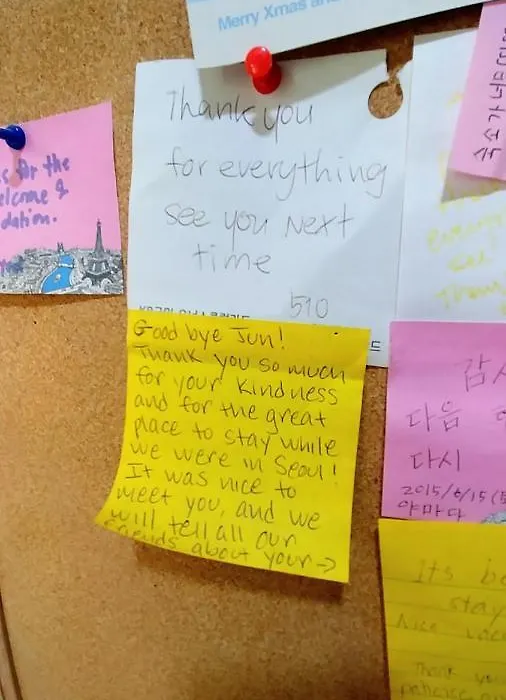 Merry Xmas an
s for the
elcome &
dation.
Thank you
for everything
see you Next
time
510
Good bye Jun!
Thank you so much
for your kindness
and for the great
place to stay while
we were in Seoul!
It was nice to
meet you, and we
will tell all our
friends about your →
감사
다음
다시
2015/6/15(
야마다
Its be
stay
Nice
Thank you